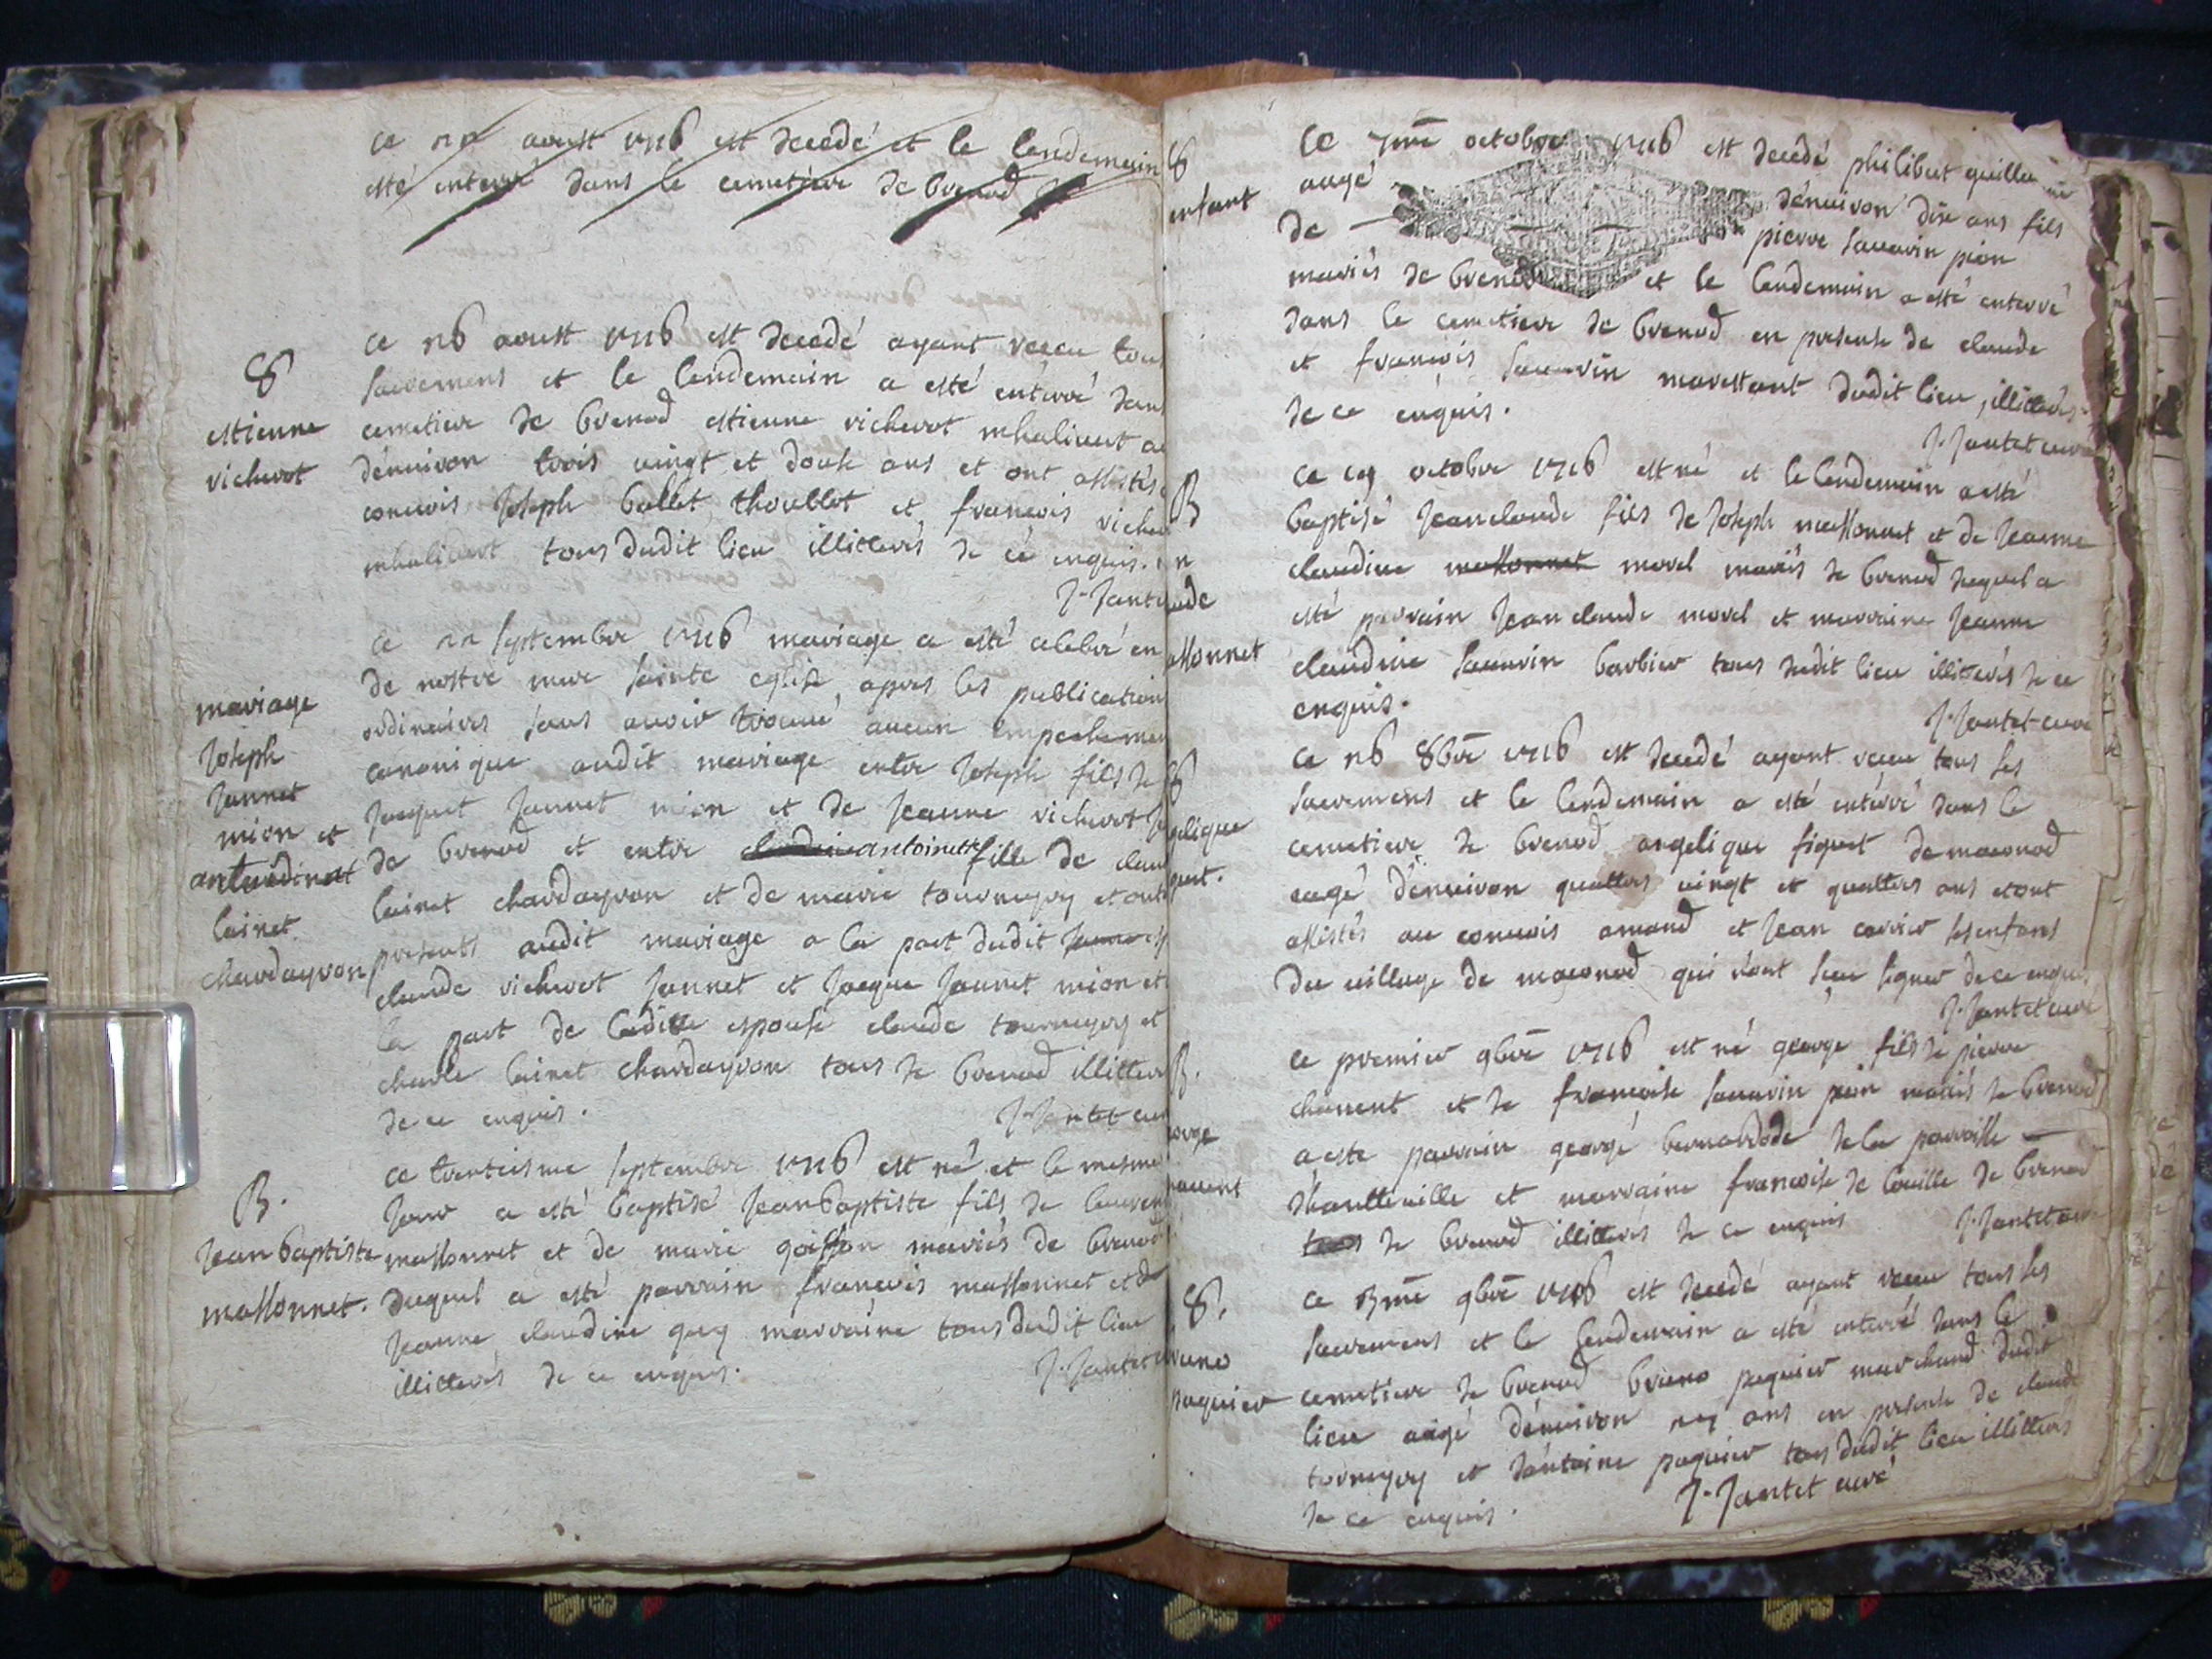 ce 22 aoust 1716 est decedé et le lendemain
esté enterré dans le cemetiere de brenod
8
estienne
vicherot
ce 26 aoust 1716 est decedé ayant receu tous
sacremens et le lendemain a esté enterré dans
cemetiere de brenod estienne vicherot inhalivert
dénuiron trois vingt et douse ans et ont assistés
conuois Joseph ballet thoublot et francois vicherot
inhalivert tous dudit lieu illitterés de cé enquis.
J. Jantet
mariage
Joseph
Jannet
mion et
antoinet
lainet
chardayron
ce 22 septembre 1716 mariage a esté celebré en
de nostre mere sainte eglise apres les publication
ordinaires sans auoir trouué aucun empechemen
canonique audit mariage entre Joseph fils de
Jacquet Jannet mion et de Jeanne vicherot
de brenod et entre antoinette fille de claud
lainet chardayron et de marie tourneyry et ont
presents audit mariage a la part dudit
claude vicherot Jannet et Jacque Jannet mion et
la part de laditte espouse claude tourneyry et
charle lainet chardayron tous de brenod illitter
de ce enquis.
J. Jantet cur
B.
Jean baptiste
massonnet.
ce trentiesme septembre 1716 est né et le mesme
Jour a esté baptisé Jean baptiste fils de lauren
massonnet et de marie goiffon mariés de brenod
duquel a esté parrain francois massonnet et
Jeanne claudine guy marraine tous dudit lieu
illitterés de ce enquis.
J. Jantet
8
enfant
ce 7me octobre 1716 est decedé philibert guillaume
aagé dénuiron dix ans fils
de pierre sauarin pion
mariés de brenod et le lendemain a esté enterré
dans le cemetiere de brenod en presence de claude
et francois sauarin marestant dudit lieu, illitterés
de ce enquis.
J. Jantet curé
B
ude
assonnet
ce octobre 1716 est né et le lendemain a esté
baptisé Jean claude fils de Joseph massonnet et de Jeanne
claudine massonnet morel mariés de brenod duquel a
esté parrain Jean claude morel et marraine Jeanne
claudine sauarin barbier tous dudit lieu illitterés de ce
enquis.
J. Jantet curé
8
gelique
guet.
ce 26 8bre 1716 est decedé ayant receu tous ses
sacremens et le lendemain a esté enterré dans le
cemetiere de brenod angelique figuet de maconod
aagé dénuiron quatters vingt et quatters ans et ont
assistés au conuois amand et Jean carrier ses enfans
du uillage de maconod qui n'ont sceu signer de ce enquis
J. Jantet curé
B.
orge
auent
ce premier 9bre 1716 est né george fils de pierre
chauent et de francoise sauarin pion mariés de brenod
a esté parrain george bernardode de la parroisse
d'hautteuille et marraine francoise de louille de brenod
tous de brenod illitterés de ce enquis
J. Jantet curé
8.
runo
paquier
ce 13me 9bre 1716 est decedé ayant receu tous ses
sacremens et le lendemain a esté enterré dans le
cemetiere de brenod bruno paquier marchand dudit
lieu aagé dénuiron ans en presence de claude
torneyry et dantoine paquier tous dudit lieu illitterés
de ce enquis.
J. Jantet curé